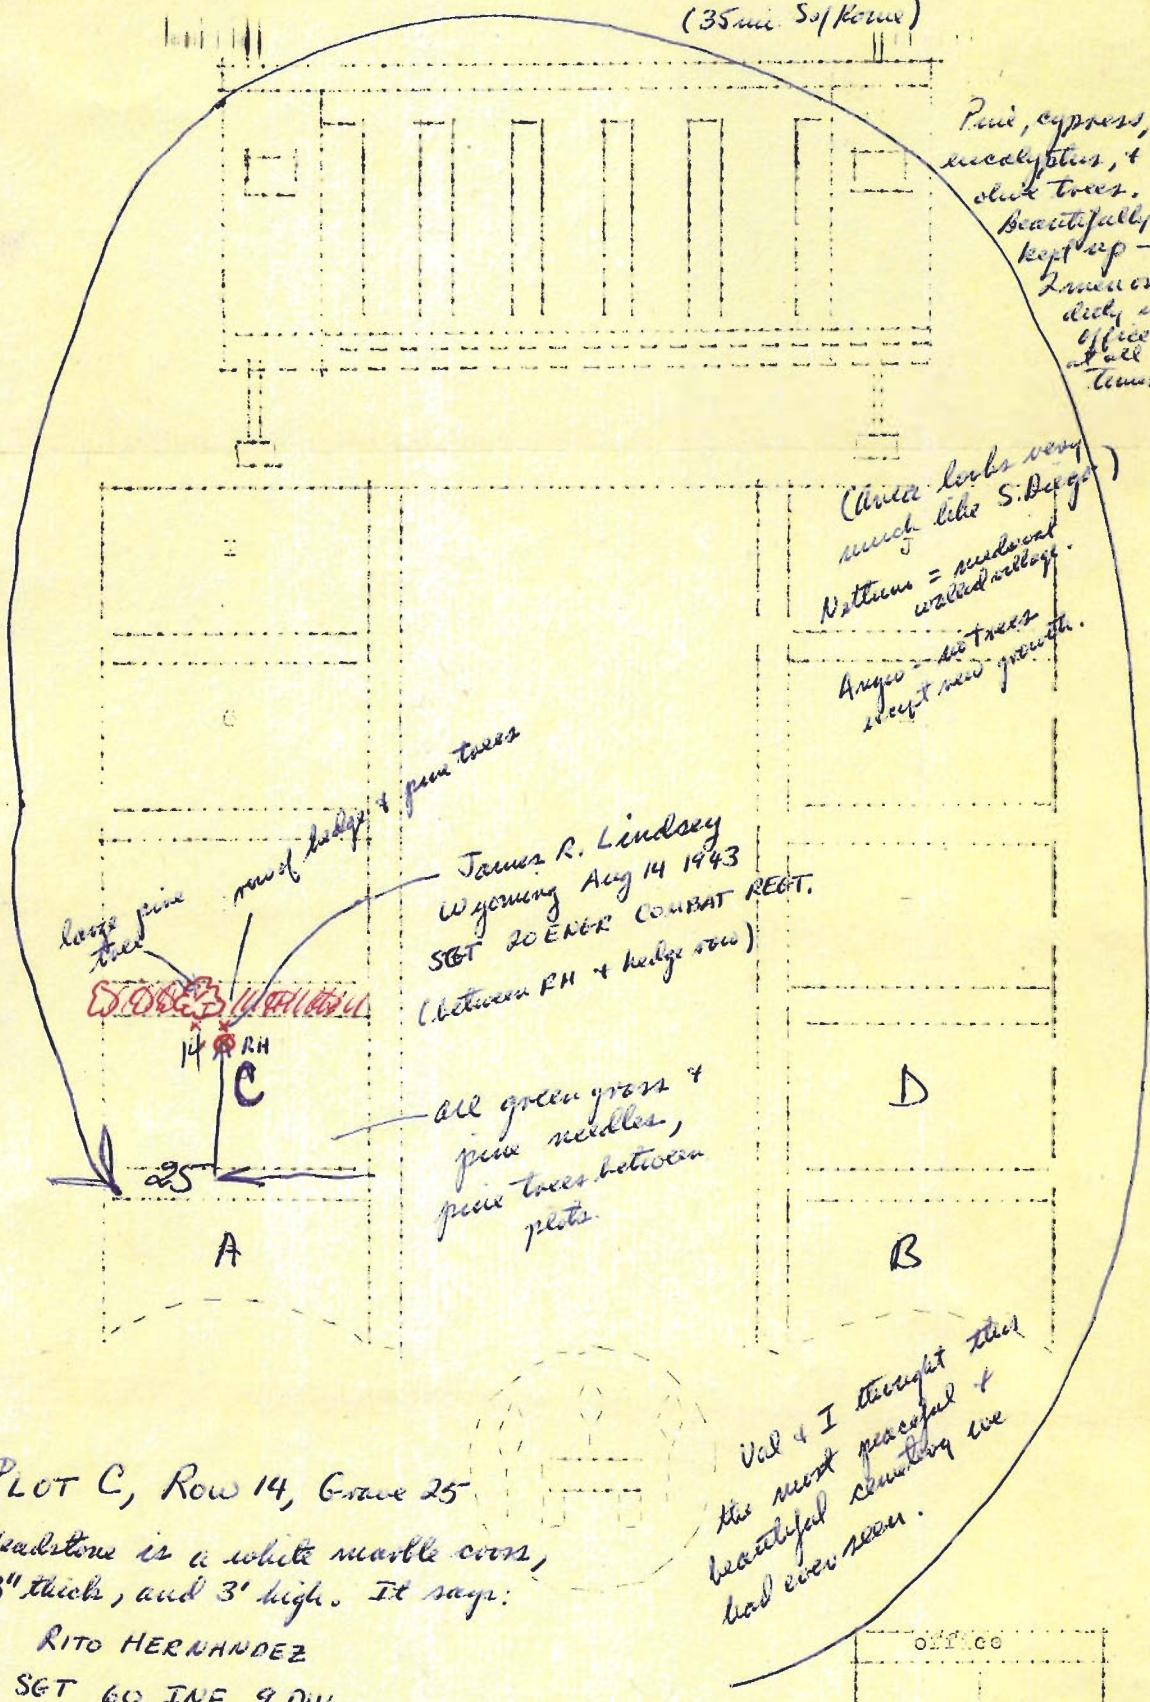 (35 mi. So/Rome)
Pine, cypress,
eucalyptus, +
olive trees.
Beautifully
kept up –
2 men on
duty
office
at all
times
(Area looks very
much like S. Diego)
Nettuno = medieval
walled village.
Anzio – no trees
except new growth.
row of hedge + pine trees
large pine
tree
James R. Lindsey
Wyoming Aug 14 1943
SGT 20 ENGR COMBAT REGT.
(between RH + hedge row)
14
RH
C
D
all green grass +
pine needles,
pine trees between
plots.
25
A
B
Val + I thought this
the most peaceful +
beautiful cemetery we
had ever seen.
PLOT C, Row 14, Grave 25
eadstone is a white marble cross,
" thick, and 3' high. It says:
RITO HERNANDEZ
SGT 60 INF 9 DIV
office